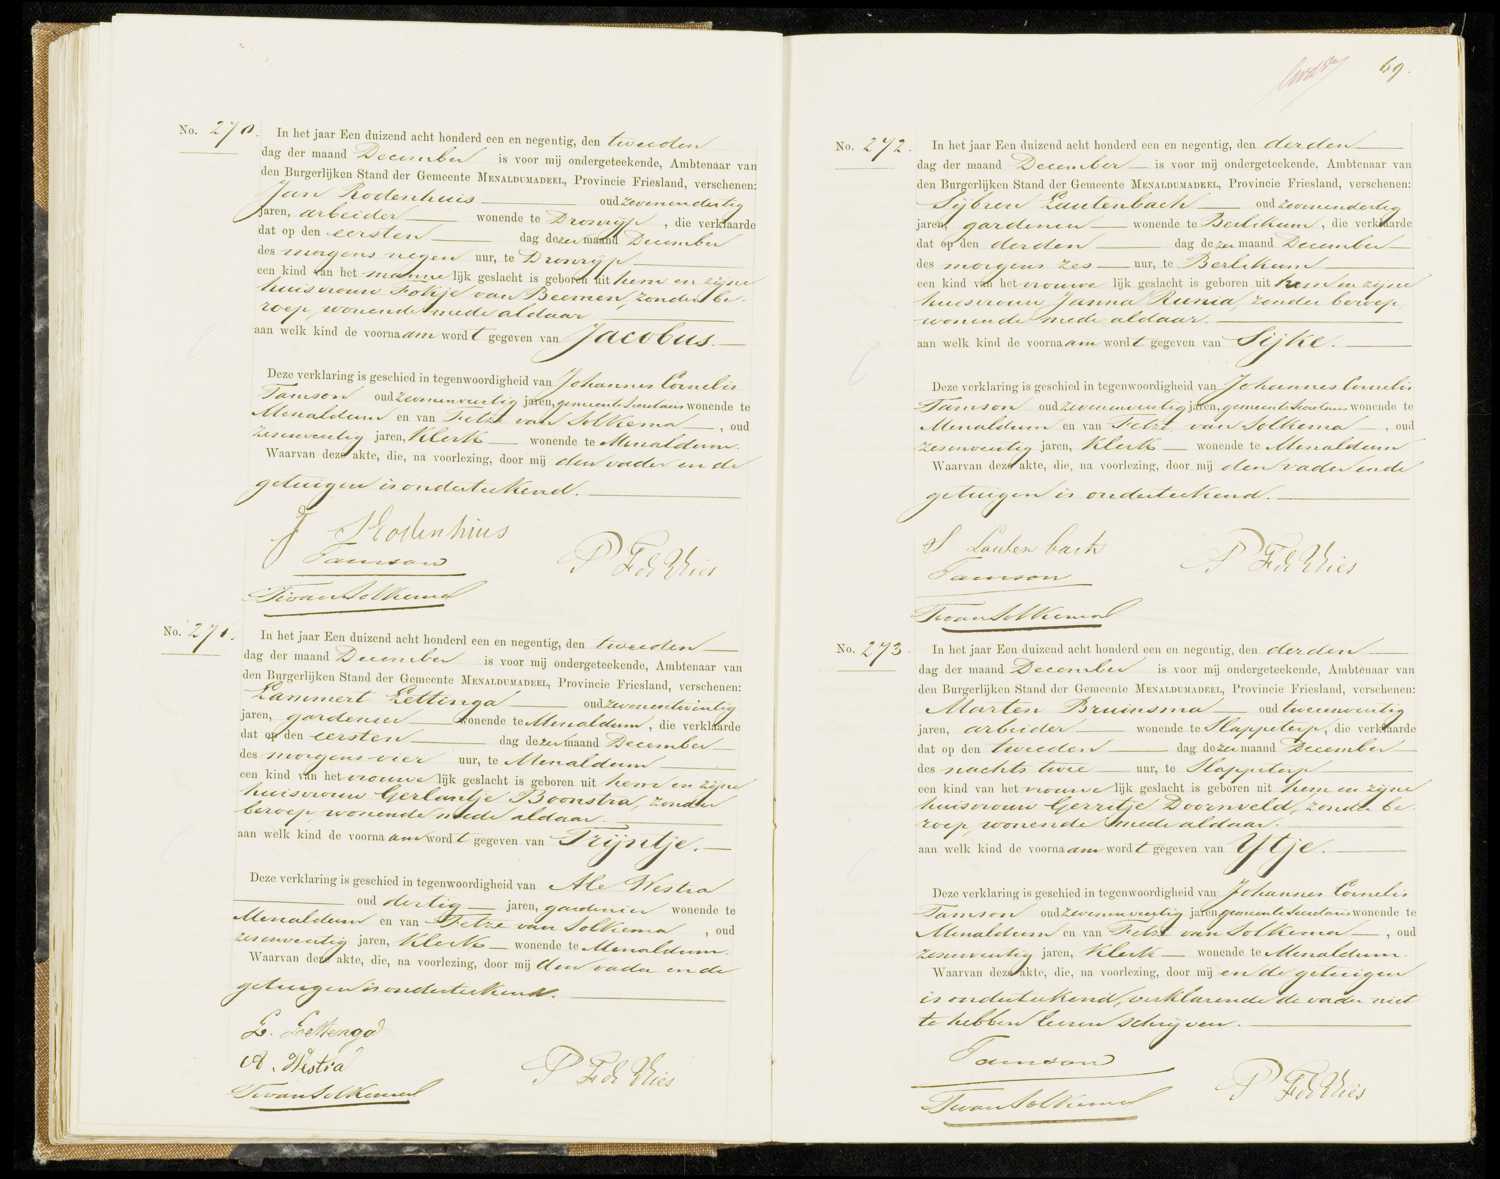 No. 270. In het jaar Een duizend acht honderd een en negentig, den tweeden
dag der maand December is voor mij ondergeteekende, Ambtenaar van
den Burgerlijken Stand der Gemeente MENALDUMADEEL, Provincie Friesland, verschenen:
Jan Rodenhuis oud zevenendertig
jaren, arbeider wonende te Dronrijp, die verklaarde
dat op den eersten dag dezer maand December
des morgens negen uur, te Dronrijp
een kind van het mannelijk geslacht is geboren uit hem en zijne
huisvrouw Fokje van Beemen, zonder be-
roep, wonende mede aldaar
aan welk kind de voornaam wordt gegeven van Jacobus.
Deze verklaring is geschied in tegenwoordigheid van Johannes Cornelis
Tamson oud zevenenveertig jaren, gemeente Secretaris wonende te
Menaldum en van Fetze van Solkema, oud
zesenveertig jaren, Klerk wonende te Menaldum.
Waarvan deze akte, die, na voorlezing, door mij den vader en de
getuigen is onderteekend.
J Rodenhuis
Tamson
P F de Vries
F van Solkema
No. 271. In het jaar Een duizend acht honderd een en negentig, den tweeden
dag der maand December is voor mij ondergeteekende, Ambtenaar van
den Burgerlijken Stand der Gemeente MENALDUMADEEL, Provincie Friesland, verschenen:
Lammert Lettinga oud zevenentwintig
jaren, gardenier wonende te Menaldum, die verklaarde
dat op den eersten dag dezer maand December
des morgens vier uur, te Menaldum
een kind van het vrouwelijk geslacht is geboren uit hem en zijne
huisvrouw Gerlantje Boonstra, zonder
beroep, wonende mede aldaar.
aan welk kind de voornaam wordt gegeven van Trijntje.
Deze verklaring is geschied in tegenwoordigheid van Ale Westra
oud dertig jaren, gardenier wonende te
Menaldum en van Fetze van Solkema, oud
zesenveertig jaren, Klerk wonende te Menaldum.
Waarvan deze akte, die, na voorlezing, door mij den vader en de
getuigen is onderteekend.
L. Lettenga
A. Westra
P F de Vries
F van Solkema
69.
No. 272. In het jaar Een duizend acht honderd een en negentig, den derden
dag der maand December is voor mij ondergeteekende, Ambtenaar van
den Burgerlijken Stand der Gemeente MENALDUMADEEL, Provincie Friesland, verschenen:
Sijbren Lautenbach oud zevenendertig
jaren, gardenier wonende te Berlikum, die verklaarde
dat op den derden dag dezer maand December
des morgens zes uur, te Berlikum
een kind van het vrouwelijk geslacht is geboren uit hem en zijne
huisvrouw Janna Runia, zonder beroep,
wonende mede aldaar.
aan welk kind de voornaam wordt gegeven van Sijke.
Deze verklaring is geschied in tegenwoordigheid van Johannes Cornelis
Tamson oud zevenenveertig jaren, gemeente Secretaris wonende te
Menaldum en van Fetze van Solkema, oud
zesenveertig jaren, Klerk wonende te Menaldum
Waarvan deze akte, die, na voorlezing, door mij den vader en de
getuigen is onderteekend.
S Lautenbach
Tamson
P F de Vries
F van Solkema
No. 273 In het jaar Een duizend acht honderd een en negentig, den derden
dag der maand December is voor mij ondergeteekende, Ambtenaar van
den Burgerlijken Stand der Gemeente MENALDUMADEEL, Provincie Friesland, verschenen:
Marten Bruinsma oud tweeenveertig
jaren, arbeider wonende te Slappeterp, die verklaarde
dat op den tweeden dag dezer maand December
des nachts twee uur, te Slappeterp
een kind van het vrouwelijk geslacht is geboren uit hem en zijne
huisvrouw Gerritje Doornveld, zonder be-
roep, wonende mede aldaar.
aan welk kind de voornaam wordt gegeven van Ytje.
Deze verklaring is geschied in tegenwoordigheid van Johannes Cornelis
Tamson oud zevenenveertig jaren gemeente Secretaris wonende te
Menaldum en van Fetze van Solkema, oud
zesenveertig jaren, Klerk wonende te Menaldum.
Waarvan deze akte, die, na voorlezing, door mij en de getuigen
is onderteekend, verklarende de vader niet
te hebben leeren schrijven.
Tamson
P F de Vries
F van Solkema